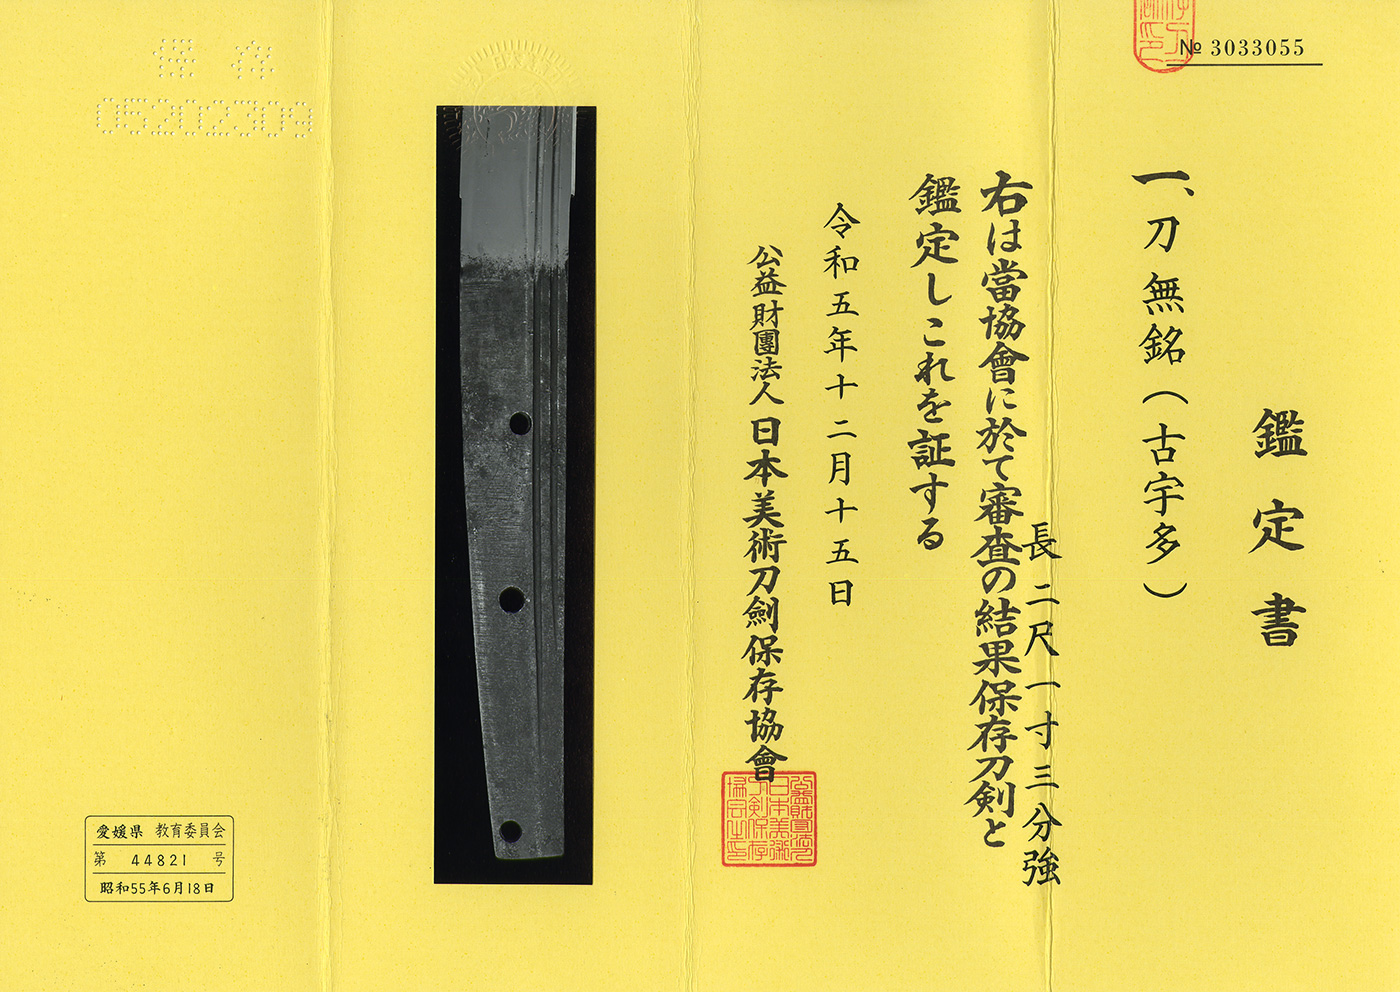 № 3033055
鑑定書
一、刀 無銘（古宇多）
長 二尺一寸三分強
右は當協會に於て審査の結果保存刀剣と
鑑定しこれを証する
令和五年十二月十五日
公益財團法人 日本美術刀劍保存協會
保存
05202309
愛媛県 教育委員会
第 44821 号
昭和55年6月18日